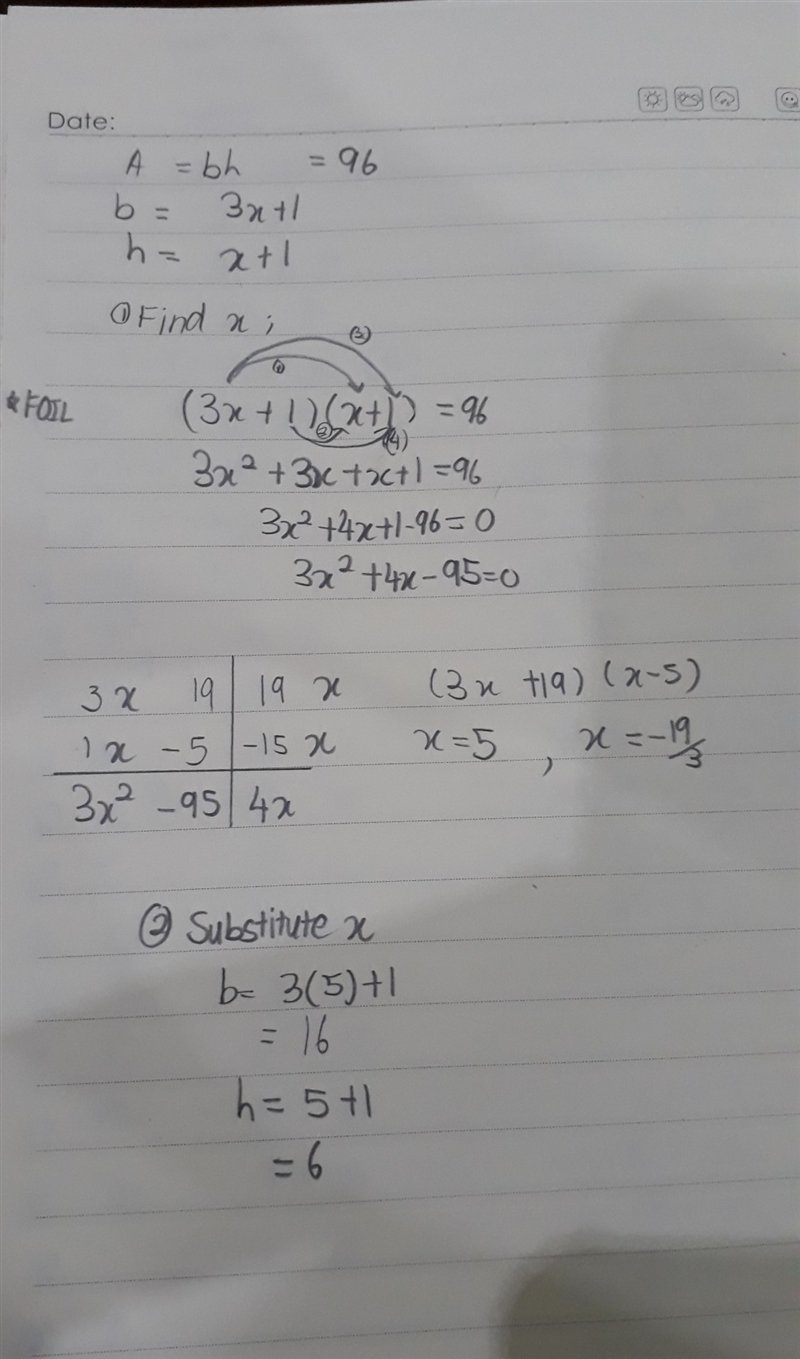 Date:
A = bh = 96
b = 3x+1
h = x+1
① Find x;
③
①
*FOIL (3x+1)(x+1) = 96
② (4)
3x² + 3x + x + 1 = 96
3x² + 4x + 1 - 96 = 0
3x² + 4x - 95 = 0
3x 19 | 19 x (3x + 19) (x - 5)
1x - 5 | -15 x x = 5 , x = -19/3
3x² - 95 | 4x
② Substitute x
b = 3(5)+1
= 16
h = 5+1
= 6